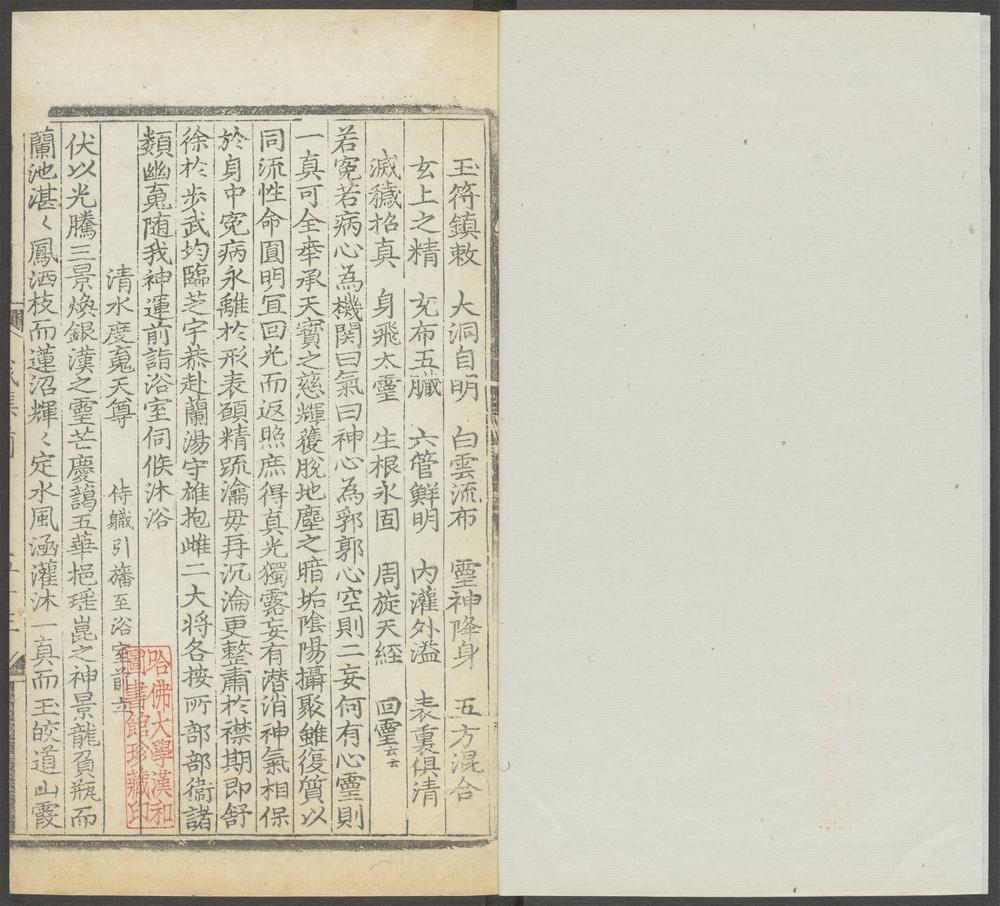 玉符鎮敕　大洞自明　白雲流布　霊神降身　五方混合
玄上之精　充布五臟　六管鮮明　內灌外溢　表裏俱清
滅穢招真　身飛太霊　生根永固　周旋天經　回霊云云
若寃若病心為機関曰氣曰神心為郭郭心空則二妄何有心霊則
一真可全奉承天寳之慈輝獲脫地塵之暗垢陰陽攝聚雖復質以
同流性命圓明冝回光而返照庶得真光獨露妄有潜消神氣相保
於身中寃病永離於形表頥精䟽瀹毋再沉淪更整肅於襟期即舒
徐於步武均臨芝宇恭赴蘭湯守雄抱雌二大将各按所部部衞諸
類幽䰟随我神運前詣浴室伺候沐浴
清水度䰟天尊　侍軄引旛至浴室前立
伏以光騰三景煥銀漢之霊芒慶藹五華挹瑶崑之神景龍負瓶而
蘭池湛〻鳳洒枝而蓮沼輝〻定水風涵灌沐一真而玉皎道山霞
哈佛大學漢和
圖書館珍藏印